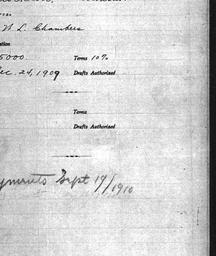 W L Chambers
5000. Terms 10%
Dec. 24, 1909 Drafts Authorized
Terms
Drafts Authorized
Sept 19/1910